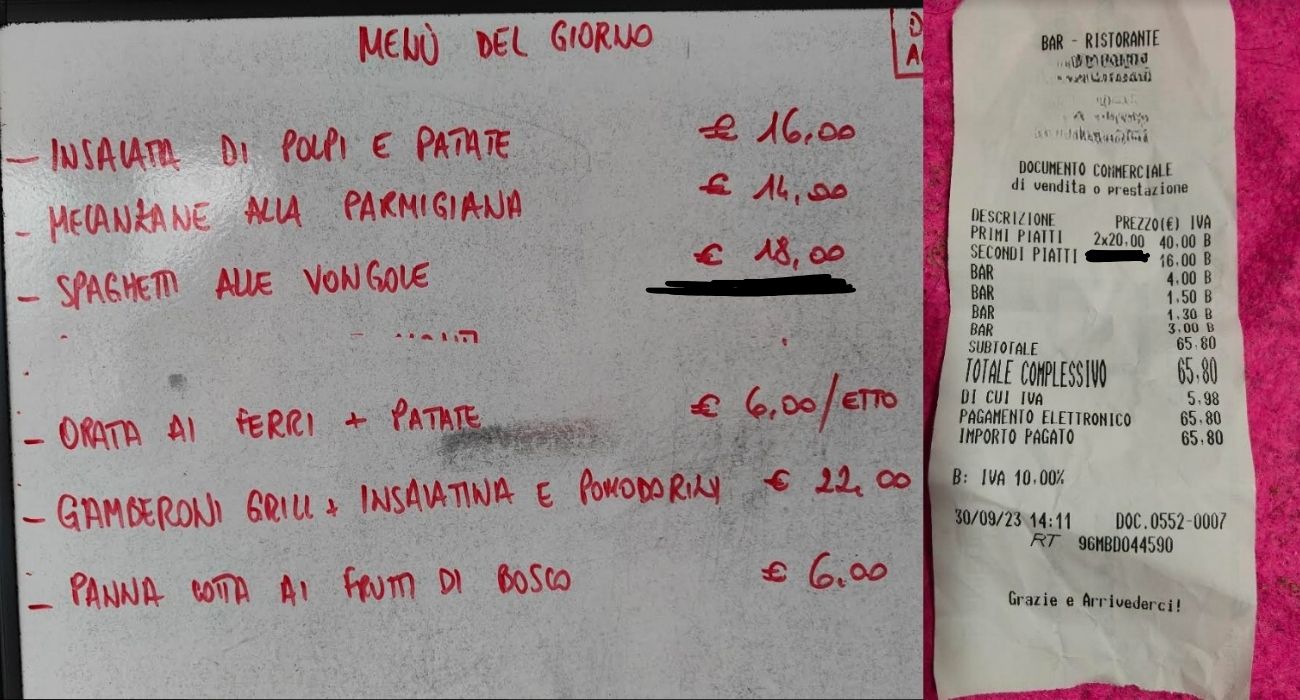 MENÙ DEL GIORNO
D
A
- INSALATA DI POLPI E PATATE € 16,00
- MELANZANE ALLA PARMIGIANA € 14,00
- SPAGHETTI ALLE VONGOLE € 18,00
- ORATA AI FERRI + PATATE € 6,00/ETTO
- GAMBERONI GRILL + INSALATINA E POMODORINI € 22,00
- PANNA COTTA AI FRUTTI DI BOSCO € 6,00
BAR - RISTORANTE
DOCUMENTO COMMERCIALE
di vendita o prestazione
DESCRIZIONE PREZZO(€) IVA
PRIMI PIATTI 2x20,00 40,00 B
SECONDI PIATTI 16,00 B
BAR 4,00 B
BAR 1,50 B
BAR 1,30 B
BAR 3,00 B
SUBTOTALE 65,80
TOTALE COMPLESSIVO 65,80
DI CUI IVA 5,98
PAGAMENTO ELETTRONICO 65,80
IMPORTO PAGATO 65,80
B: IVA 10,00%
30/09/23 14:11 DOC.0552-0007
RT 96MBD044590
Grazie e Arrivederci!